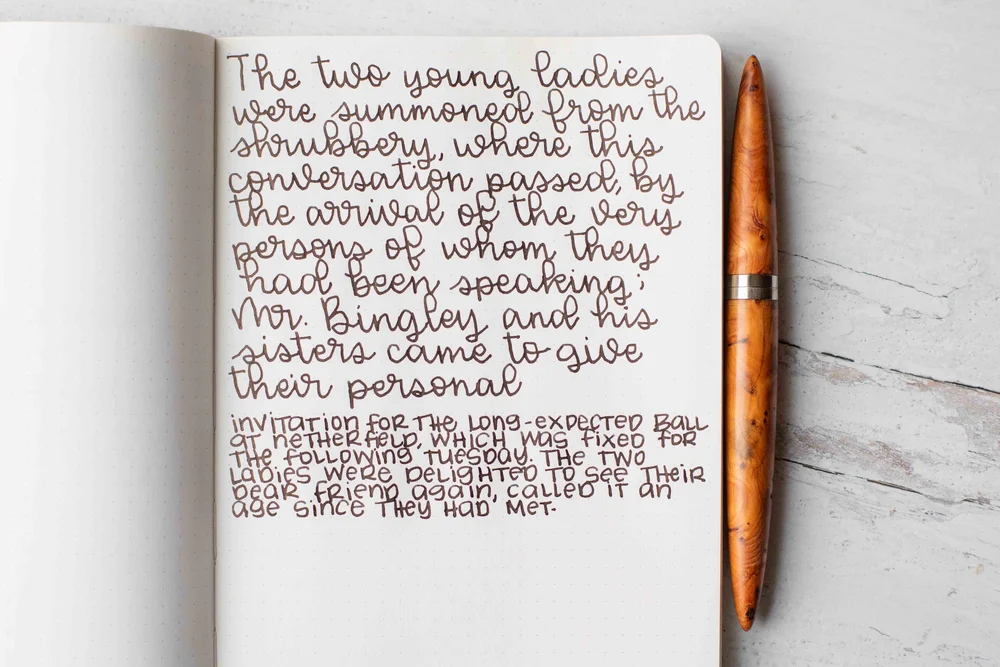 The two young ladies
were summoned from the
shrubbery, where this
conversation passed, by
the arrival of the very
persons of whom they
had been speaking;
Mr. Bingley and his
sisters came to give
their personal
invitation for the long-expected ball
at netherfield, which was fixed for
the following tuesday. the two
ladies were delighted to see their
dear friend again, called it an
age since they had met.